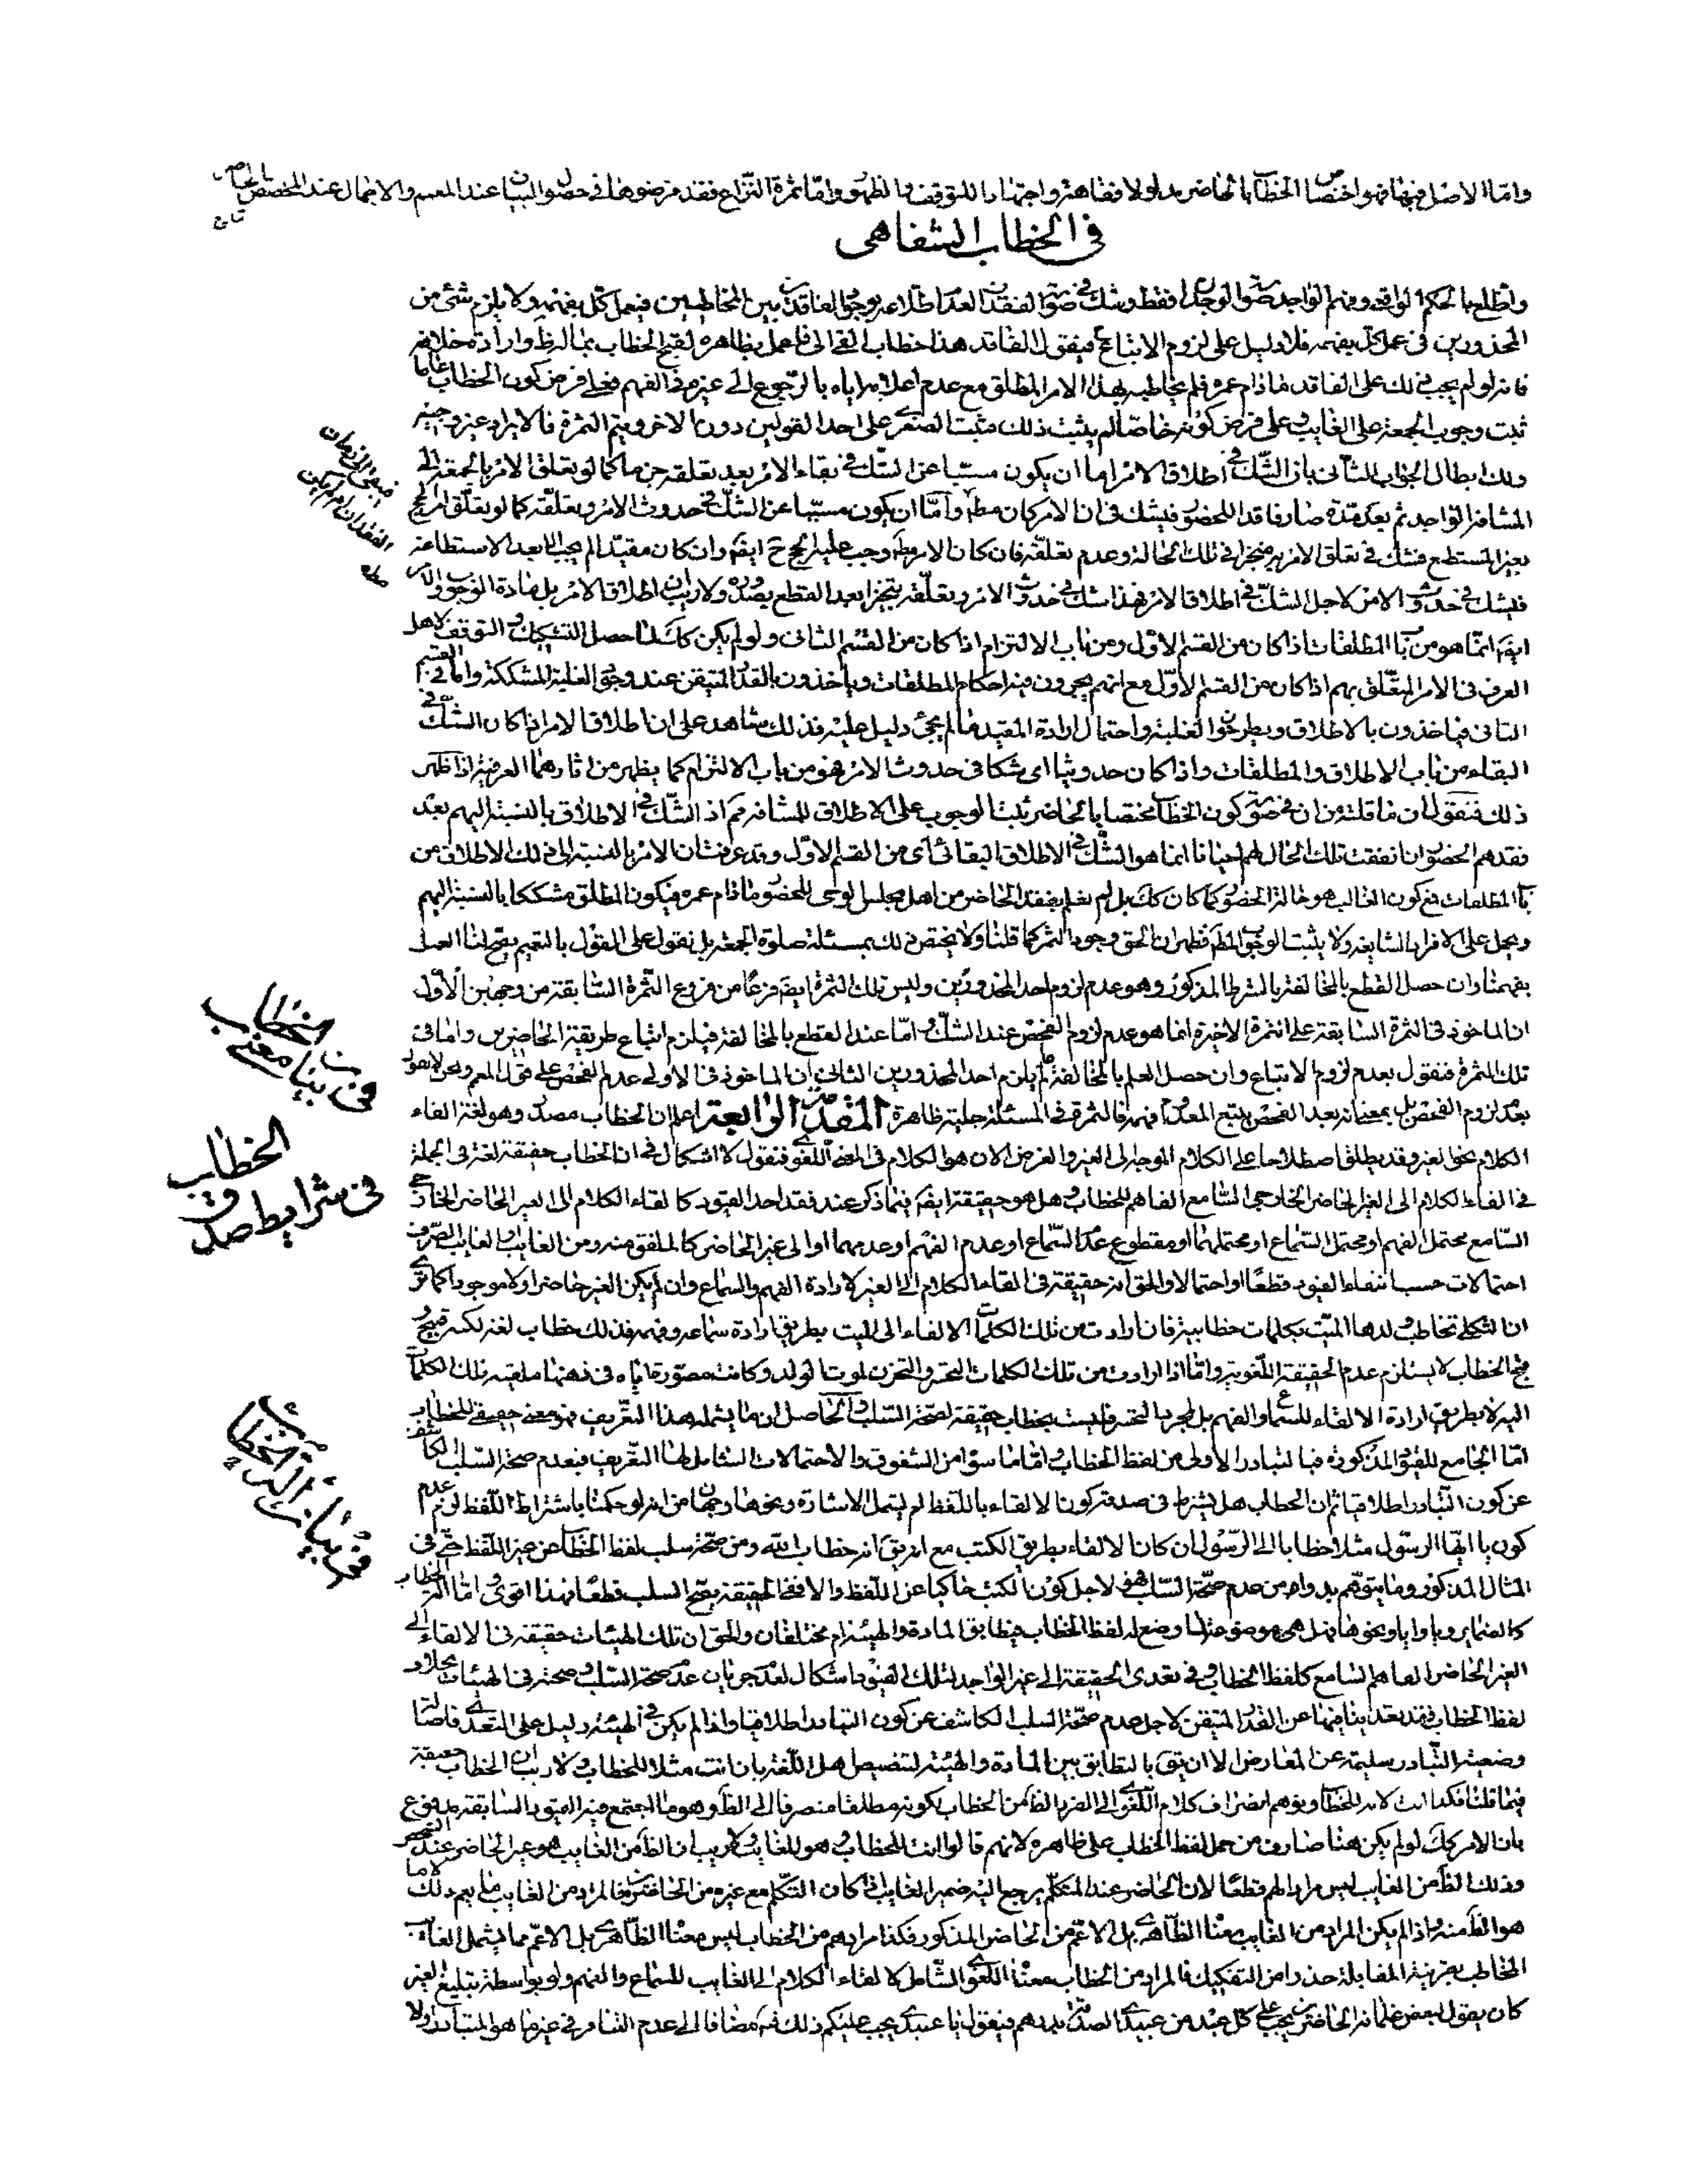 واما الاصل فيها فهو اختصاص الخطاب بالحاضر مدلولا فقاهة واجتهادا للتوقف والظهور واما ثمرة النزاع فقد فرضوها في حصول البيان عند المعمم والاجمال عند المخصص
في الخطاب الشفاهى
واطلع بالحكم الواقعي وفهم الواجد صورة الوجدان فقط وشك في صورة الفقدان لعدم اطلاعه بوجود الفاقد بين المخاطبين فيعمل كل بفهمه ولا يلزم شئ من
المحذورين في عمل كل بفهمه فلا دليل على لزوم الاتباع فيقول الفاقد هذا خطاب القى الى فاعمل بظاهره لقبح الخطاب بماله ظ وارادة خلافه
فانه لو لم يجب ذلك على الفاقد مادام عمره فلم يخاطبه بهذا الامر المطلق مع عدم اعلامه اياه بالرجوع الى غيره في الفهم فعلى فرض كون الخطاب عاما
ثبت وجوب الجمعة على الغايب وعلى فرض كونه خاصا لم يثبت ذلك فثبت الصغرى على احد القولين دون الاخر ويتم الثمرة فالايراد غير وجيه
ولك ابطال الجواب الثانى بان الشك في اطلاق الامر اما ان يكون مسببا عن الشك في بقاء الامر بعد تعلقه جزما كما لو تعلق الامر بالجمعة الى
المسافر الواجد ثم بعد مدة صار فاقدا للحضور فيشك في ان الامر كان مط واما ان يكون مسببا عن الشك في حدوث الامر وتعلقه كما لو تعلق امر الحج
بغير المستطيع فشك في تعلق الامر به منجزا في تلك الحالة وعدم تعلقه فان كان الامر مط وجب عليه الحج ح ايضا وان كان مقيدا لم يجب الا بعد الاستطاعة
فيشك في حدوث الامر لاجل الشك في اطلاق الامر فهذا شك في حدوث الامر وتعلقه بتنجزا بعد القطع بصدوره ولا ريب ان اطلاق الامر بل مادة الوجوب والامر
ايضا انما هو من باب المطلقات اذا كان من القسم الاول ومن باب الالتزام اذا كان من القسم الثانى ولو لم يكن كذلك لما حصل التشكيك والتوقف لاهل
العرف في الامر المتعلق بهم اذا كان من القسم الاول مع انهم يجرون فيه احكام المطلقات وياخذون بالقدر المتيقن عند وجود الغلبة المشككة واما في القسم
الثانى فياخذون بالاطلاق ويطرحوا الغلبة واحتمال ارادة المقيد مالم يجئ دليل عليه فذلك شاهد على ان اطلاق الامر اذا كان الشك في
البقاء من باب الاطلاق والمطلقات واذا كان حدوثيا اى شكا في حدوث الامر فهو من باب الالتزام كما يظهر من اثارهما العرفية اذا ظهر
ذلك فنقول ان ما قلته من ان في صورة كون الخطاب مختصا بالحاضر يثبت الوجوب على الاطلاق للمسافر مم اذ الشك في الاطلاق بالنسبة اليهم بعد
فقدهم الحضور ان اتفقت تلك الحال لهم احيانا انما هو الشك في الاطلاق البقائى اى من القسم الاول وقد عرفت ان الامر بالنسبة الى ذلك الاطلاق من
باب المطلقات فمع كون الغالب هو حالة الحضور كما كان كك بل لم نعلم بفقد الحاضر من اهل مجلس الوحى للحضور مادام عمره فيكون المطلق مشككا بالنسبة اليهم
ويحمل على الافراد الشايعة ولا يثبت الوجوب المط فظهر ان الحق وجود الثمر كما قلنا ولا يختص ذلك بمسئلة صلوة الجمعة بل نقول على القول بالتعميم يصح لنا العمل
بفهمنا وان حصل القطع بالمخالفة بالشرط المذكور وهو عدم لزوم احد المحذورين وليس تلك الثمرة ايضا فرعا من فروع الثمرة السابقة من وجهين الاول
ان الماخوذ في الثمرة السابقة على الثمرة الاخيرة انما هو عدم لزوم الفحص عند الشك واما عند القطع بالمخالفة فيلزم اتباع طريقة الحاضرين واما في
تلك الثمرة فنقول بعدم لزوم الاتباع وان حصل العلم بالمخالفة مالم يلزم احد المحذورين الثانى ان الماخوذ في الاولى عدم الفحص على قول المعمم ونحن لا نقول
بعدم لزوم الفحص بل بمعنى انه بعد الفحص يتبع المعدوم فهمه فالثمرة في المسئلة جلية ظاهرة المقدمة الرابعة اعلم ان الخطاب مصدر وهو لغة القاء
الكلام نحو الغير وقد يطلق اصطلاحا على الكلام الموجه الى الغير والغرض الان هو الكلام في المعنى اللغوى فنقول لا اشكال في ان الخطاب حقيقة لغة في الجملة
في القاء الكلام الى الغير الحاضر الخارجى السامع الفاهم للخطاب وهل هو حقيقة ايضا فيما ذكر عند فقد احد القيود كالقاء الكلام الى الغير الحاضر الخارجى
السامع محتمل الفهم او محتمل السماع او محتملهما او مقطوع عدم السماع او عدم الفهم او عدمهما او الى غير الحاضر كالملفق منه ومن الغايب والغايب الصرف
احتمالات حسب انتفاء القيود قطعا او احتمالا والحق انه حقيقة في القاء الكلام الى الغير لارادة الفهم والسماع وان لم يكن الغير حاضرا ولا موجودا كما ترى
ان الثكلى تخاطب ولدها الميت بكلمات خطابية فان ارادت من تلك الكلمات الالقاء الى الميت بطريق ارادة سماعه وفهمه فذلك خطاب لغة لكنه قبيح و
قبح الخطاب لا يستلزم عدم الحقيقة اللغوية واما اذا ارادت من تلك الكلمات التحسر والتحزن لموت الولد وكانت مصورة اياه في ذهنها ملقية تلك الكلمات
اليه لا بطريق ارادة الالقاء للسماع والفهم بل لمجرد التحسر فليست بخطاب حقيقة لصحة السلب والحاصل ان ما يشمله هذا التعريف فهو معنى حقيقى للخطاب
اما الجامع للقيود المذكورة فبالتبادر الاولى من لفظ الخطاب واما ما سواه من الشقوق والاحتمالات الشامل لها التعريف فبعدم صحة السلب الكاشف
عن كون التبادر اطلاقيا ثم ان الخطاب هل يشترط في صدقه كون الالقاء باللفظ ام يشمل الاشارة ونحوها وجهان من انه لو حكمنا باشتراط اللفظ لزم عدم
كون يا ايها الرسول مثلا خطابا الى الرسول ان كان الالقاء بطريق الكتب مع انه يق انه خطاب الله ومن صحة سلب لفظ الخطاب عن غير اللفظ حتى في
المثال المذكور وما يتوهم بدوا من عدم صحة السلب فهو لاجل كون الكتب حاكيا عن اللفظ والا ففى الحقيقة يصح السلب قطعا فهذا اقوى واما الخطاب
كالضماير ويا وايا ونحوها فهل هى موضوعة لما وضع له لفظ الخطاب فيطابق المادة والهيئة ام مختلفان والحق ان تلك الهيئات حقيقة في الالقاء الى
الغير الحاضر الفاهم السامع كلفظ الخطاب وفي تعدى الحقيقة الى غير الواجد لتلك القيود اشكال لعدم جريان عدم صحة السلب وصحته في الهيئات بخلاف
لفظ الخطاب فقد تعدينا فيها عن القدر المتيقن لاجل عدم صحة السلب الكاشف عن كون التبادر اطلاقيا واذا لم يكن في الهيئة دليل على التعدى فاصالة
وضعية التبادر سليمة عن المعارض الا ان يق بالتطابق بين المادة والهيئة لتنصيص اهل اللغة بان انت مثلا للخطاب ولا ريب ان الخطاب حقيقة
فيما قلنا فكذا انت لانه للخطاب وتوهم انصراف كلام اللغوى الى الفرد الظ من الخطاب لكونه مطلقا منصرفا الى الظ وهو ما اجتمع فيه القيود السابقة مدفوع
بان الامر كك لو لم يكن هنا صارف من حمل لفظ الخطاب على ظاهره لانهم قالوا انت للخطاب وهو للغايب ولا ريب ان الظ من الغايب هو غير الحاضر عند الشخص
وذلك الظ من الغايب ليس مرادا لهم قطعا لان الحاضر عند المتكلم يرجع اليه ضمير الغايب اذا كان التكلم مع غيره من الحاضرين فالمراد من الغايب ما يعم ذلك لا ما
هو الظ منه واذا لم يكن المراد من الغايب معناه الظاهرى بل الاعم من الحاضر المذكور فكذا مرادهم من الخطاب ليس معناه الظاهرى بل الاعم مما يشمل الغايب
المخاطب بقرينة المقابلة حذرا من التفكيك فالمراد من الخطاب معناه اللغوى الشامل لالقاء الكلام الى الغايب للسماع والفهم ولو بواسطة تبليغ الغير
كان يقول لبعض غلمانه الحاضرين يجب على كل عبد من عبيدى التصدق بدرهم فيقول يا عبيدى يجب عليكم ذلك فت مضافا الى عدم التنافر في غير ما هو المتبادر ولا
في بيان معنى الخطاب
في شرايط صدق الخطاب
في بيان الة الخطاب